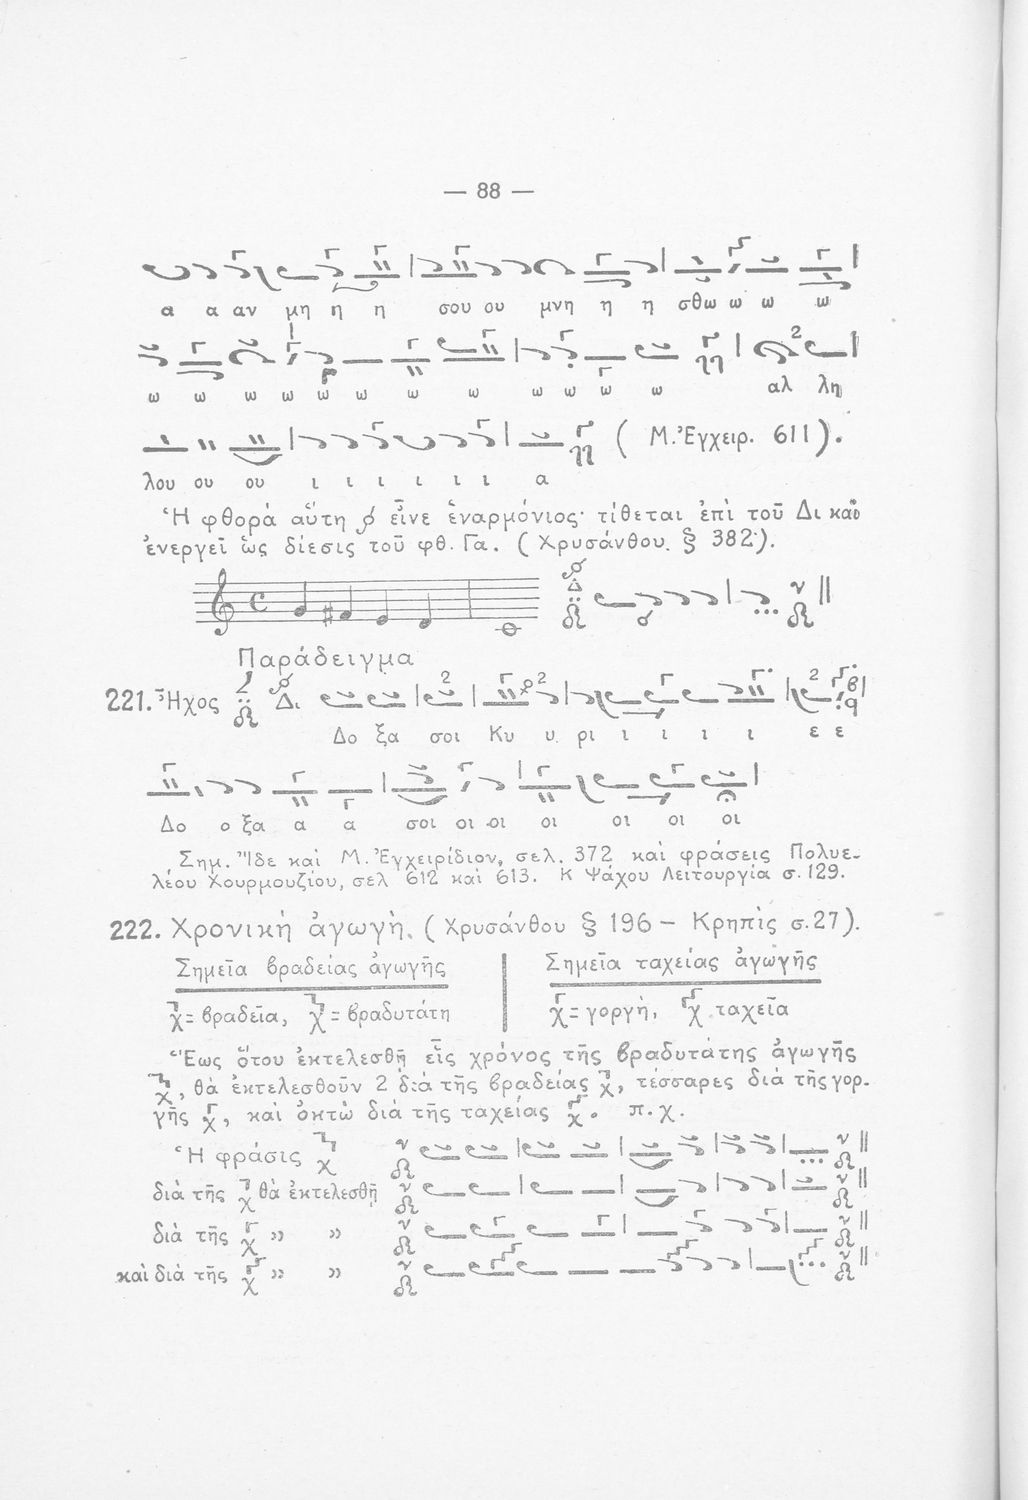 — 88 —
α α αν μη η η σου ου μνη η η σθω ω ω ω
ω ω ω ω ω ω ω ω ω ω ω ω αλ λη
λου ου ου ι ι ι ι ι ι α ( Μ. Ἐγχειρ. 611 ).
Ἡ φθορὰ αὕτη εἶνε ἐναρμόνιος· τίθεται ἐπὶ τοῦ Δι καὶ
ἐνεργεῖ ὡς δίεσις τοῦ φθ. Γα. ( Χρυσάνθου. § 382·).
Παράδειγμα
221. Ἦχος Δι
Δο ξα σοι Κυ υ ρι ι ι ι ι ε ε
Δο ο ξα α α σοι οι οι οι οι οι οι
Σημ. Ἴδε καὶ Μ. Ἐγχειρίδιον, σελ. 372 καὶ φράσεις Πολυε-
λέου Χουρμουζίου, σελ 612 καὶ 613. Κ Ψάχου Λειτουργία σ. 129.
222. Χρονικὴ ἀγωγὴ. ( Χρυσάνθου § 196 – Κρηπὶς σ. 27).
Σημεῖα βραδείας ἀγωγῆς Σημεῖα ταχείας ἀγωγῆς
χ = βραδεῖα, χ = βραδυτάτη χ = γοργὴ, χ ταχεῖα
Ἕως ὅτου ἐκτελεσθῇ εἷς χρόνος τῆς βραδυτάτης ἀγωγῆς
χ, θὰ ἐκτελεσθοῦν 2 διὰ τῆς βραδείας χ, τέσσαρες διὰ τῆς γορ-
γῆς χ, καὶ ὀκτὼ διὰ τῆς ταχείας χ. π. χ.
Ἡ φράσις χ
διὰ τῆς χ θὰ ἐκτελεσθῇ
διὰ τῆς χ » »
καὶ διὰ τῆς χ » »